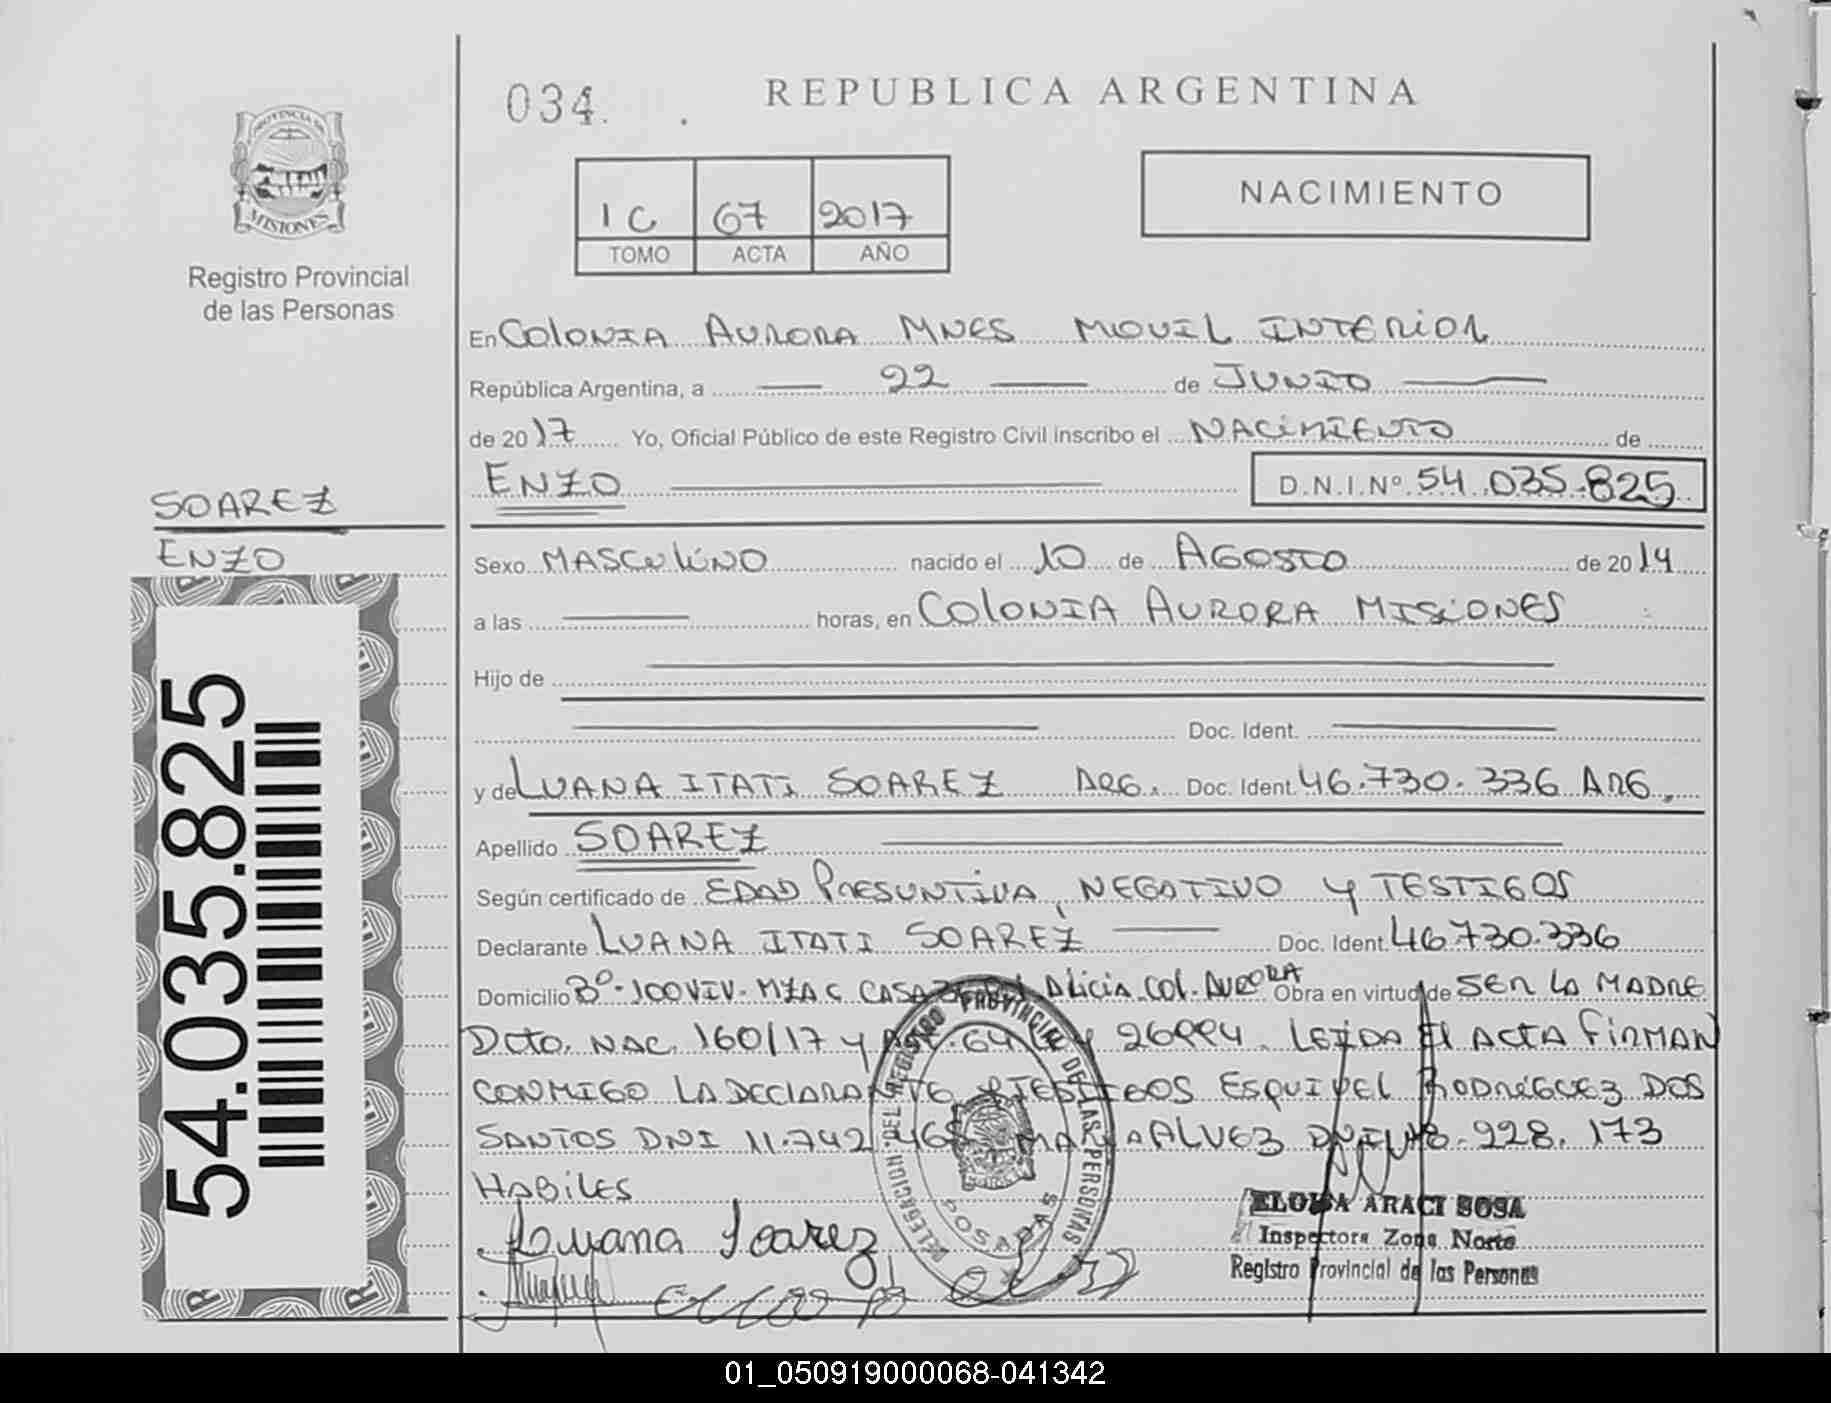 034.
REPUBLICA ARGENTINA
PROVINCIA DE
MISIONES
Registro Provincial
de las Personas
1C 67 2017
TOMO ACTA AÑO
NACIMIENTO
En COLONIA AURORA MNES MOVIL INTERIOR
República Argentina, a 22 de JUNIO
de 2017 Yo, Oficial Público de este Registro Civil inscribo el NACIMIENTO de
ENZO D.N.I.Nº 54.035.825
SOAREZ
ENZO
Sexo MASCULINO nacido el 10 de AGOSTO de 2014
a las horas, en COLONIA AURORA MISIONES
Hijo de
Doc. Ident.
y de LUANA ITATI SOAREZ ARG. Doc. Ident. 46.730.336 ARG.
Apellido SOAREZ
Según certificado de EDAD PRESUNTIVA, NEGATIVO Y TESTIGOS
Declarante LUANA ITATI SOAREZ Doc. Ident. 46.730.336
Domicilio Bº 100 VIV. MZA C CASA ALICIA COL. AURORA Obra en virtud de SER LA MADRE
DCTO. NAC. 160/17 Y 64 LEY 26994. LEIDA El ACTA FIRMAN
CONMIGO LA DECLARANTE Y TESTIGOS ESQUIVEL RODRIGUEZ DOS
SANTOS DNI 11.742. ALVEZ 928.173
HABILES
Luyana Soarez
DELEGACION DEL REGISTRO PROVINCIAL DE LAS PERSONAS
POSADAS
ELOISA ARACI SOSA
Inspectora Zona Norte
Registro Provincial de las Personas
54.035.825
01_050919000068-041342